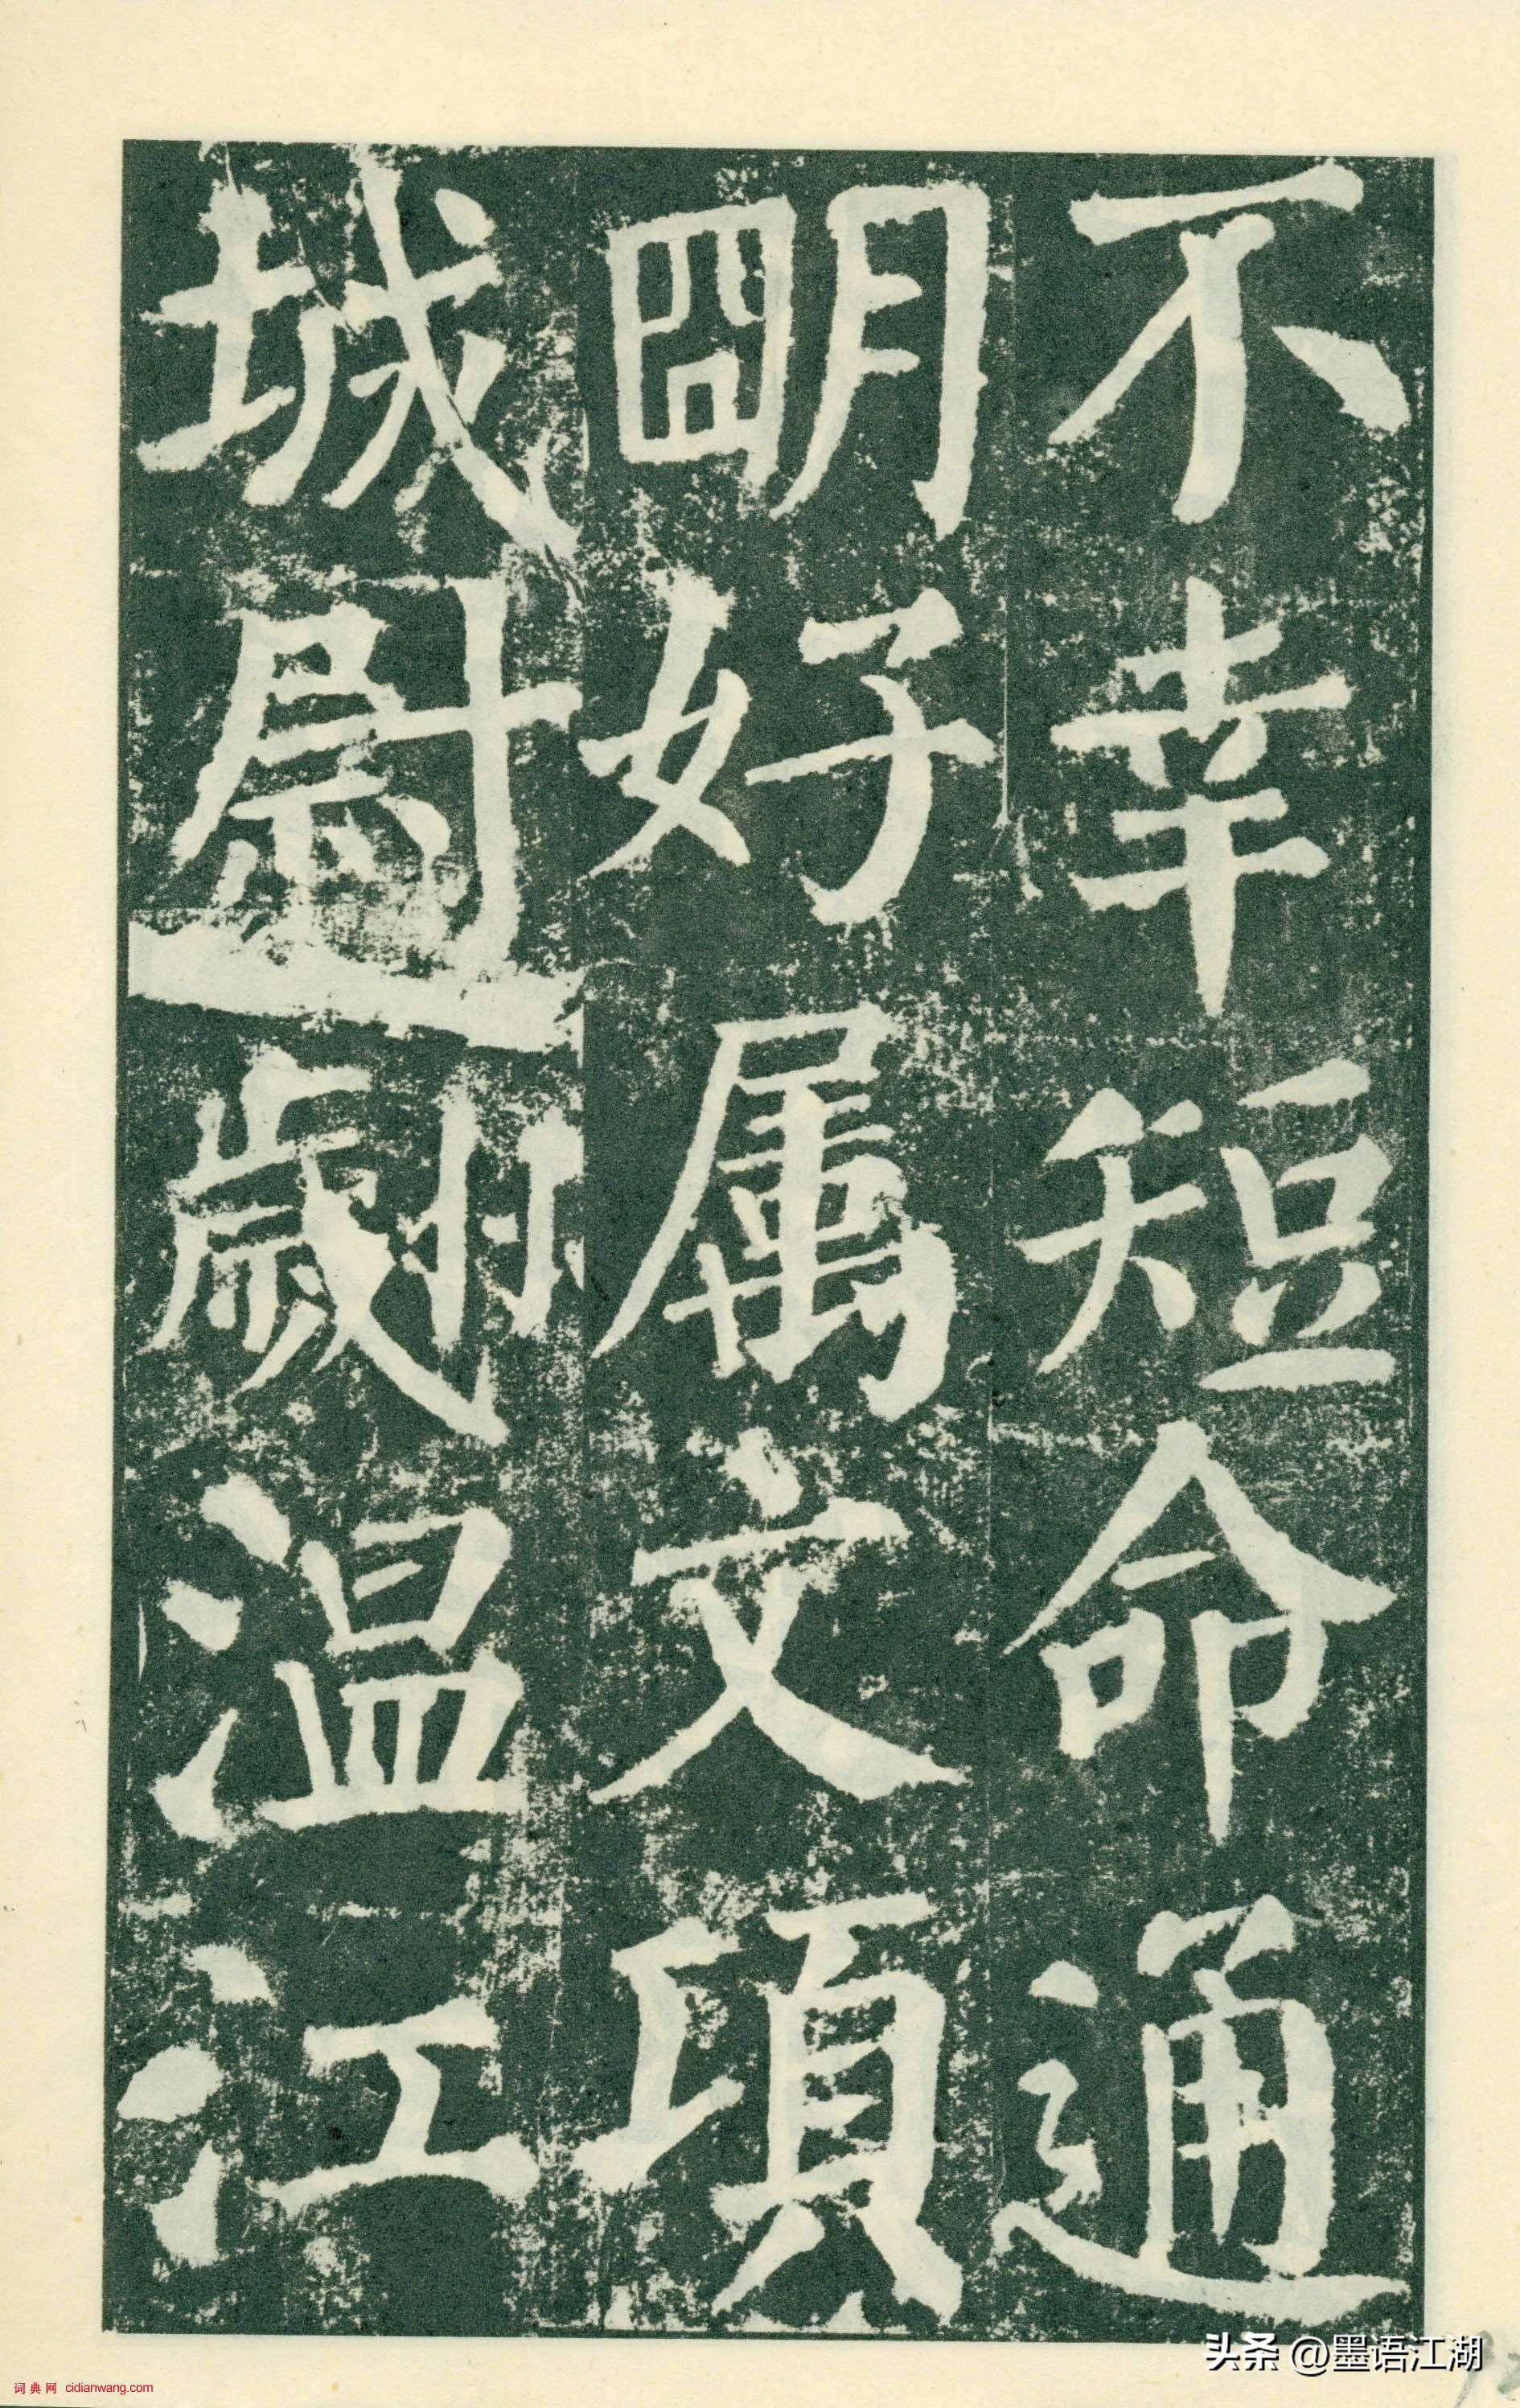 不幸短命通
明好属文項
城尉劌温江
头条 @墨语江湖
词典网 cidianwang.com